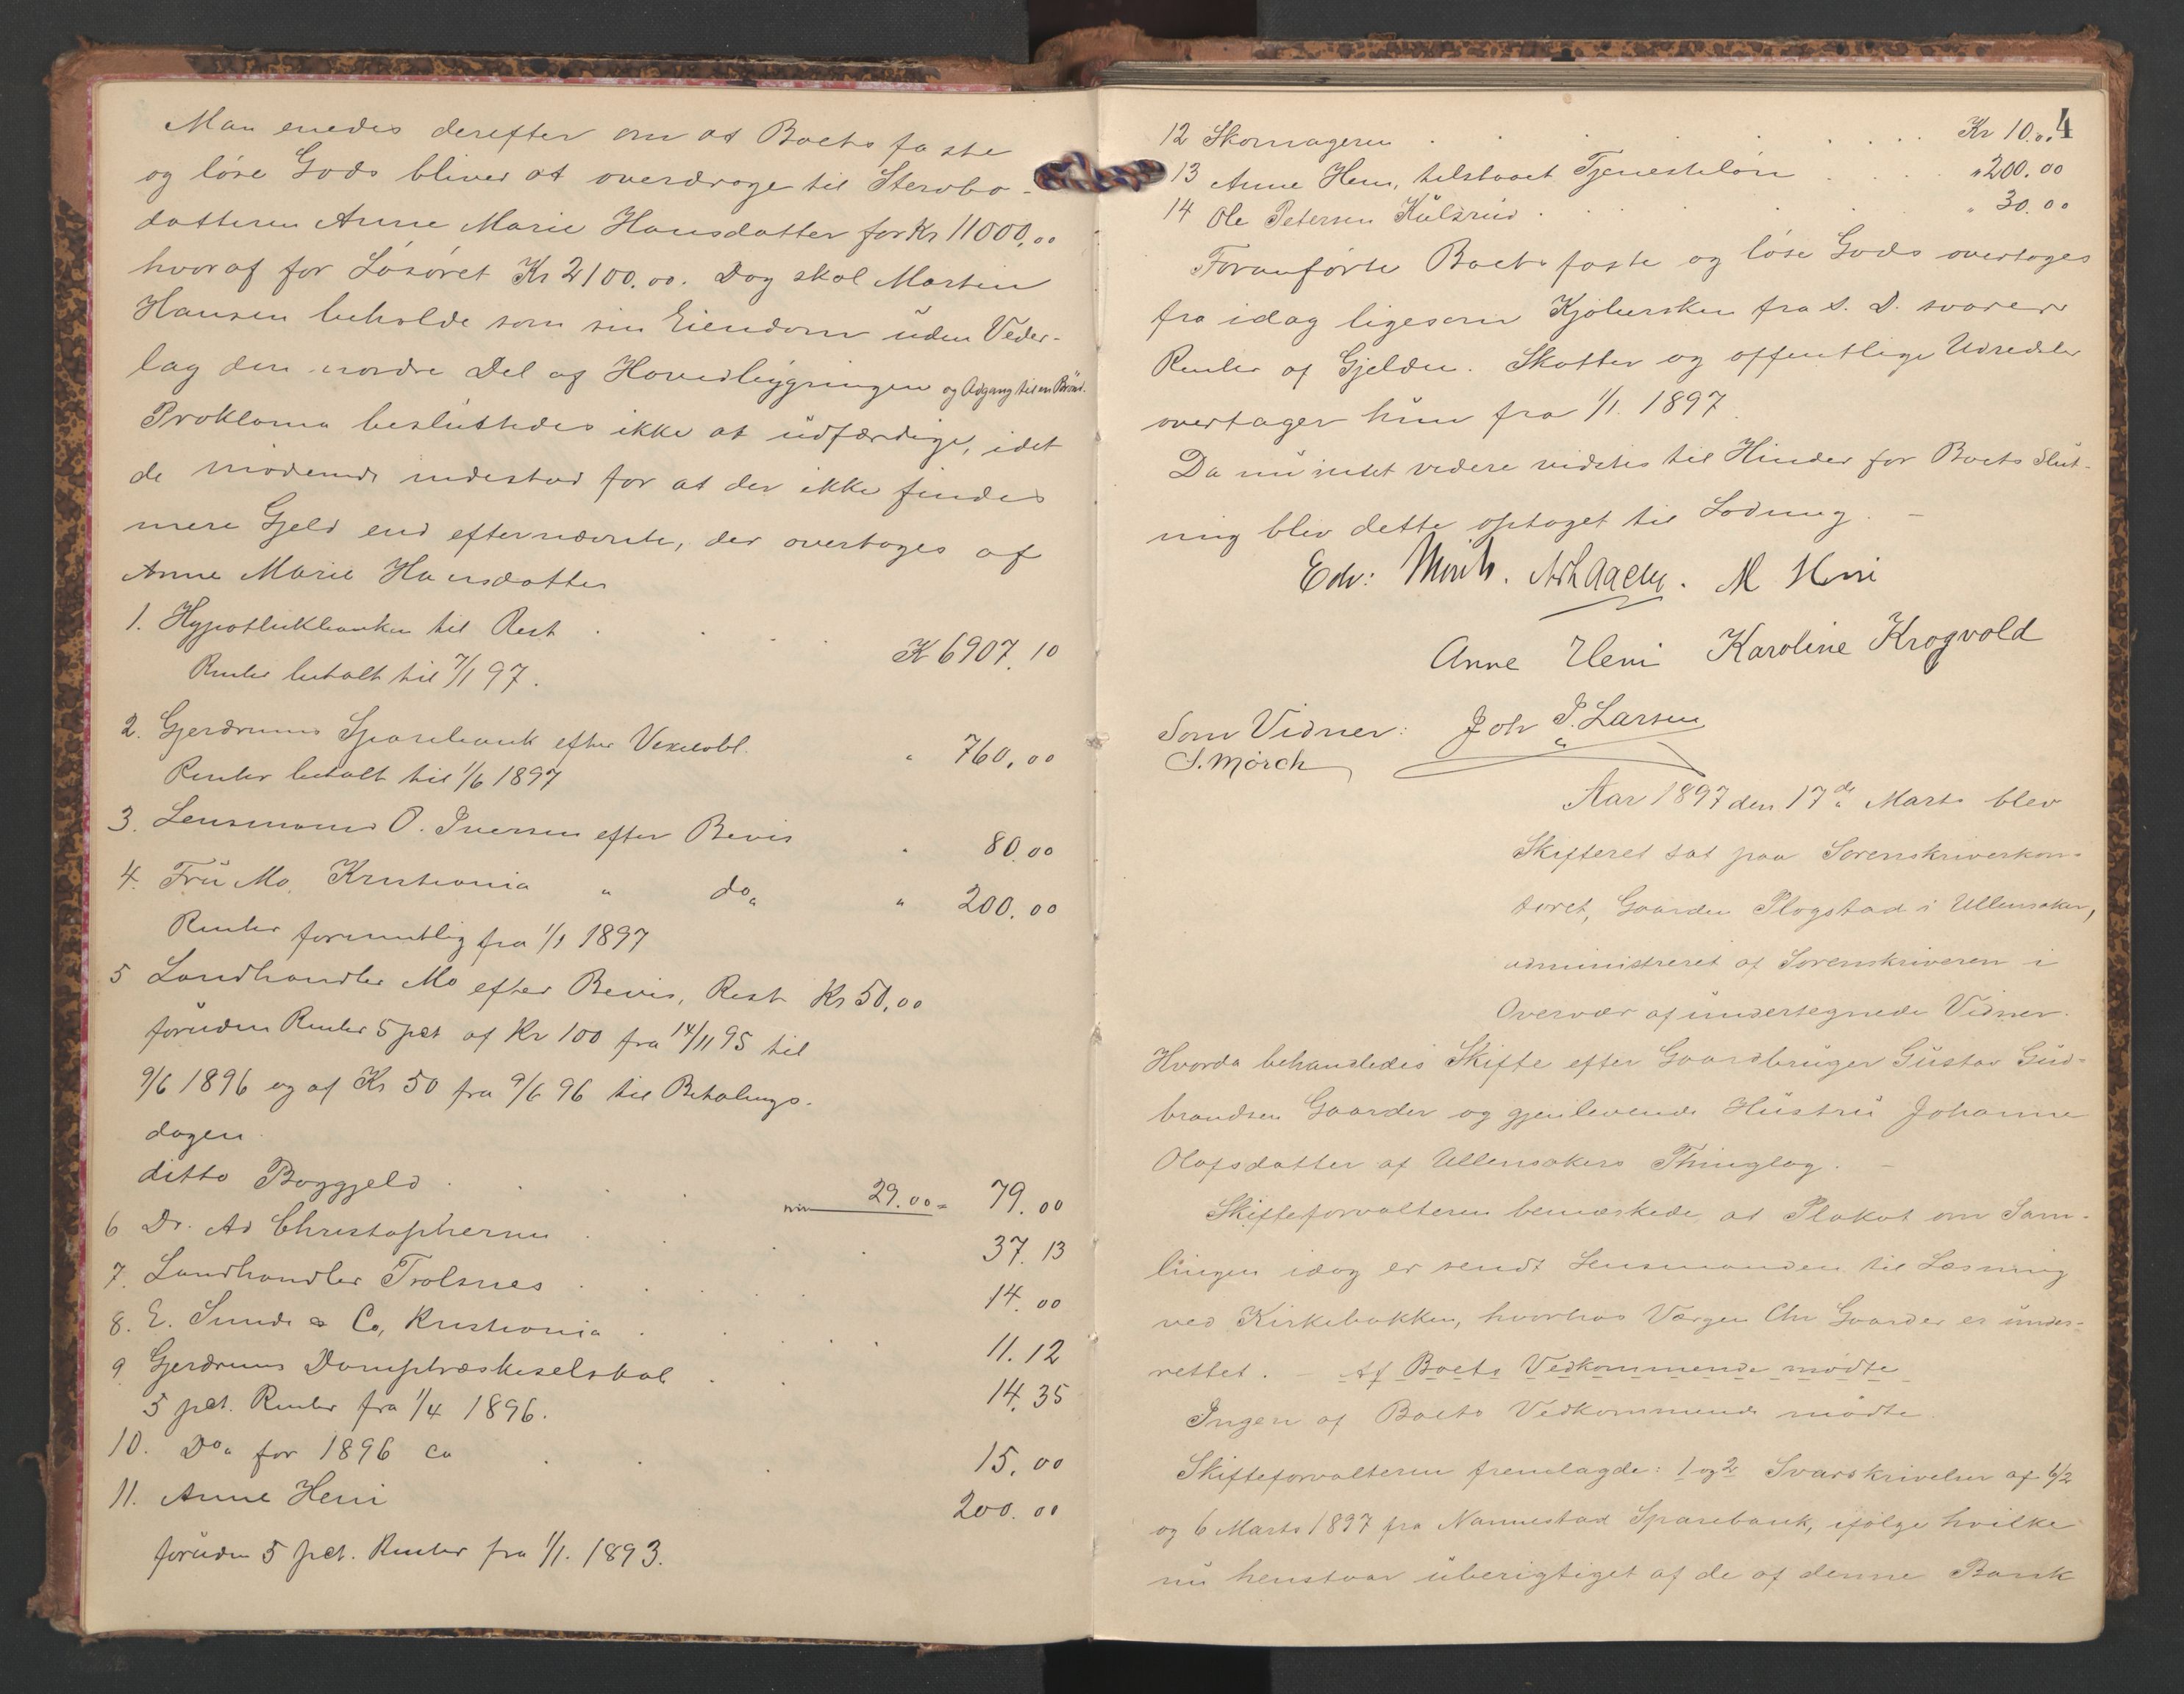 Man enedes derefter om at Boets faste
og løse Gods bliver at overdrage til Stervbo-
datteren Anne Marie Hansdatter for Kr 11000,00
hvoraf for Løsøret Kr 2100.00. Dog skal Martin
Hansen beholde som sin Eiendom uden Veder-
lag den nordre Del af Hovedbygningen og Adgang til en Brønd.
Proklama besluttedes ikke at udfærdige, idet
de mødende indestod for at der ikke findes
mere Gjeld end efternævnte, der overtages af
Anne Marie Hansdatter
1. Hypothekbanken til Rest . . . . K 6907.10
Renter betalt til 7/1 97.
2. Gjerdrums Sparebank efter Vexelobl. " 760,00
Renter betalt til 1/6 1897
3. Lensmand O. Iversen efter Bevis " 80,00
4. Fru Mo, Kristiania " do " 200.00
Renter formentlig fra 1/1 1897
5 Landhandler Mo efter Bevis, Rest Kr 50,00
foruden Renter 5 pct af Kr 100 fra 14/11 95 til
9/6 1896 og af Kr 50 fra 9/6 96 til Betalings-
dagen.
ditto Boggjeld . . . 29.00 = 79.00
6 Dr. Ad Christophersen . . . 37.13
7. Landhandler Trolsnes . . . 14.00
8. E. Sunde & Co, Kristiania . . . 11.12
9 Gjerdrums Damptræskeselskab . . 14.35
5 pct. Renter fra 1/4 1896.
10. Do for 1896 ca . . . 15,00
11. Anne Heni 200.00
foruden 5 pct. Renter fra 1/1. 1893.
4
12 Skomageren . . . Kr 10.00
13 Anne Heni, tilstaaet Tjenesteløn . . . " 200.00
14 Ole Petersen Kulsrud . . . " 30.00
Foranførte Boets faste og løse Gods overtages
fra idag ligesom Kjøbersken fra d. D. svarer
Renter af Gjelden. Skatter og offentlige Udredsler
overtager hun fra 1/1. 1897.
Da nu intet videre vidstes til Hinder for Boets Slut-
ning blev dette optaget til Lodning. -
Edv: Mørch. M Heni
Anne Heni Karoline Krogvold
Som Vidner: Joh P. Larsen
S. Mørch
Aar 1897 den 17de Marts blev
Skifteret sat paa Sorenskriverkon-
toret, Gaarden Plogstad i Ullensaker,
administreret af Sorenskriveren i
Overvær af undertegnede Vidner.
Hvorda behandledes Skifte efter Gaardbruger Gustav Gud-
brandsen Gaarder og gjenlevende Hustru Johanne
Olafsdatter af Ullensakers Thinglag. -
Skifteforvalteren bemærkede, at Plakat om Sam-
lingen idag er sendt Lensmanden til Læsning
ved Kirkebakken, hvorhos Værgen Chr Gaarder er under-
rettet. - Af Boets Vedkommende mødte
Ingen af Boets Vedkommende mødte
Skifteforvalteren fremlagde: 1 og 2 Svarskrivelser af 6/2
og 6 Marts 1897 fra Nannestad Sparebank, ifølge hvilke
nu henstaar uberigtiget af de af denne Bank